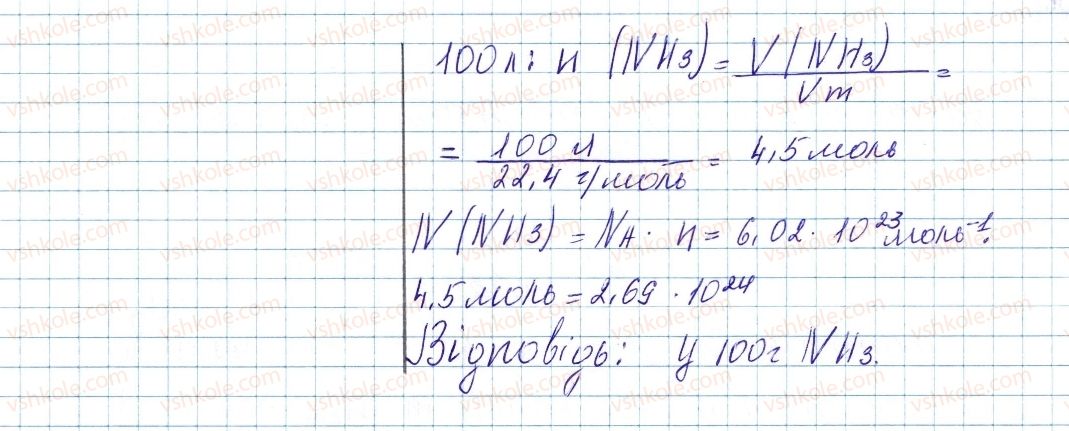 100 л: n (NH3) = V(NH3) / Vm =
= 100 л / 22,4 г/моль = 4,5 моль
N (NH3) = NA · n = 6,02 · 10²³ моль⁻¹ ·
4,5 моль = 2,69 · 10²⁴
Відповідь: у 100г NH3.
vshkole.com